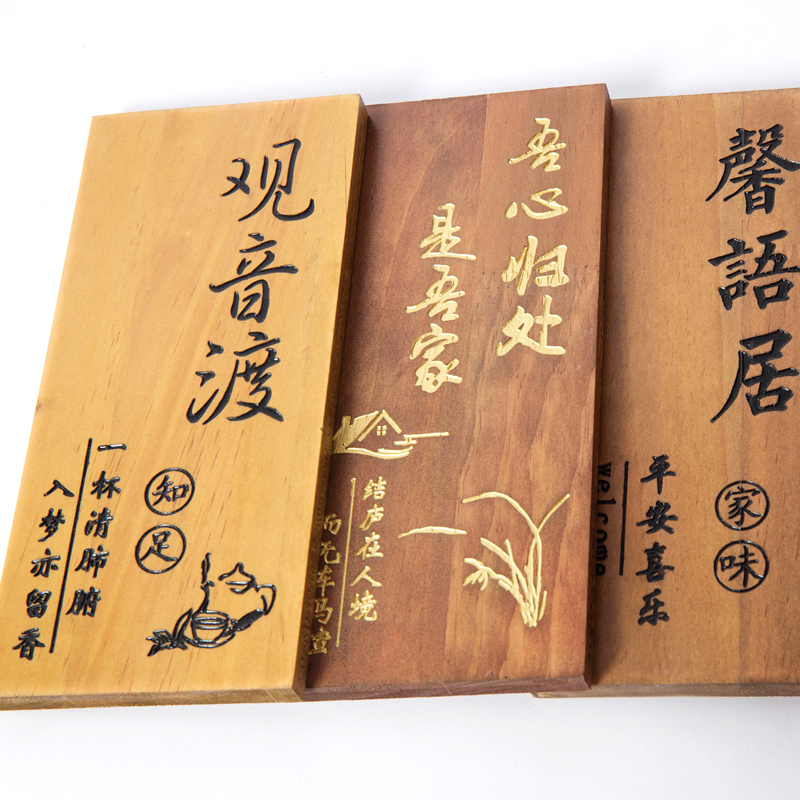 观音渡
知足
一杯清肺腑
入梦亦留香
吾心归处
是吾家
结庐在人境
而无车马喧
馨語居
家味
平安喜乐
welcome